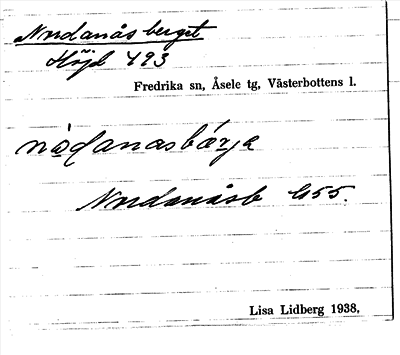 Nordanåsberget
Höjd 493
Fredrika sn, Åsele tg, Västerbottens l.
Nordanåsb G55.
Lisa Lidberg 1938.